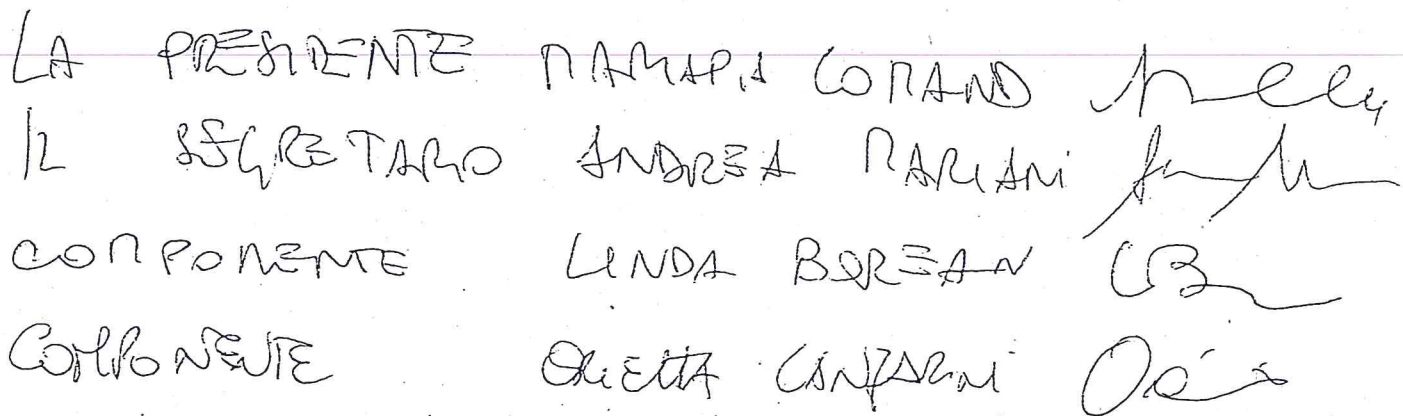 LA PRESIDENTE MARIAPIA COMAND
IL SEGRETARIO ANDREA MARIANI
COMPONENTE LINDA BOREAN
COMPONENTE ORIETTA LANZARINI